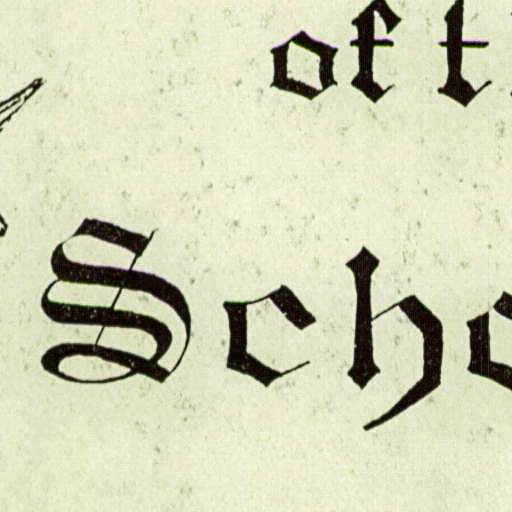 of t
Sch